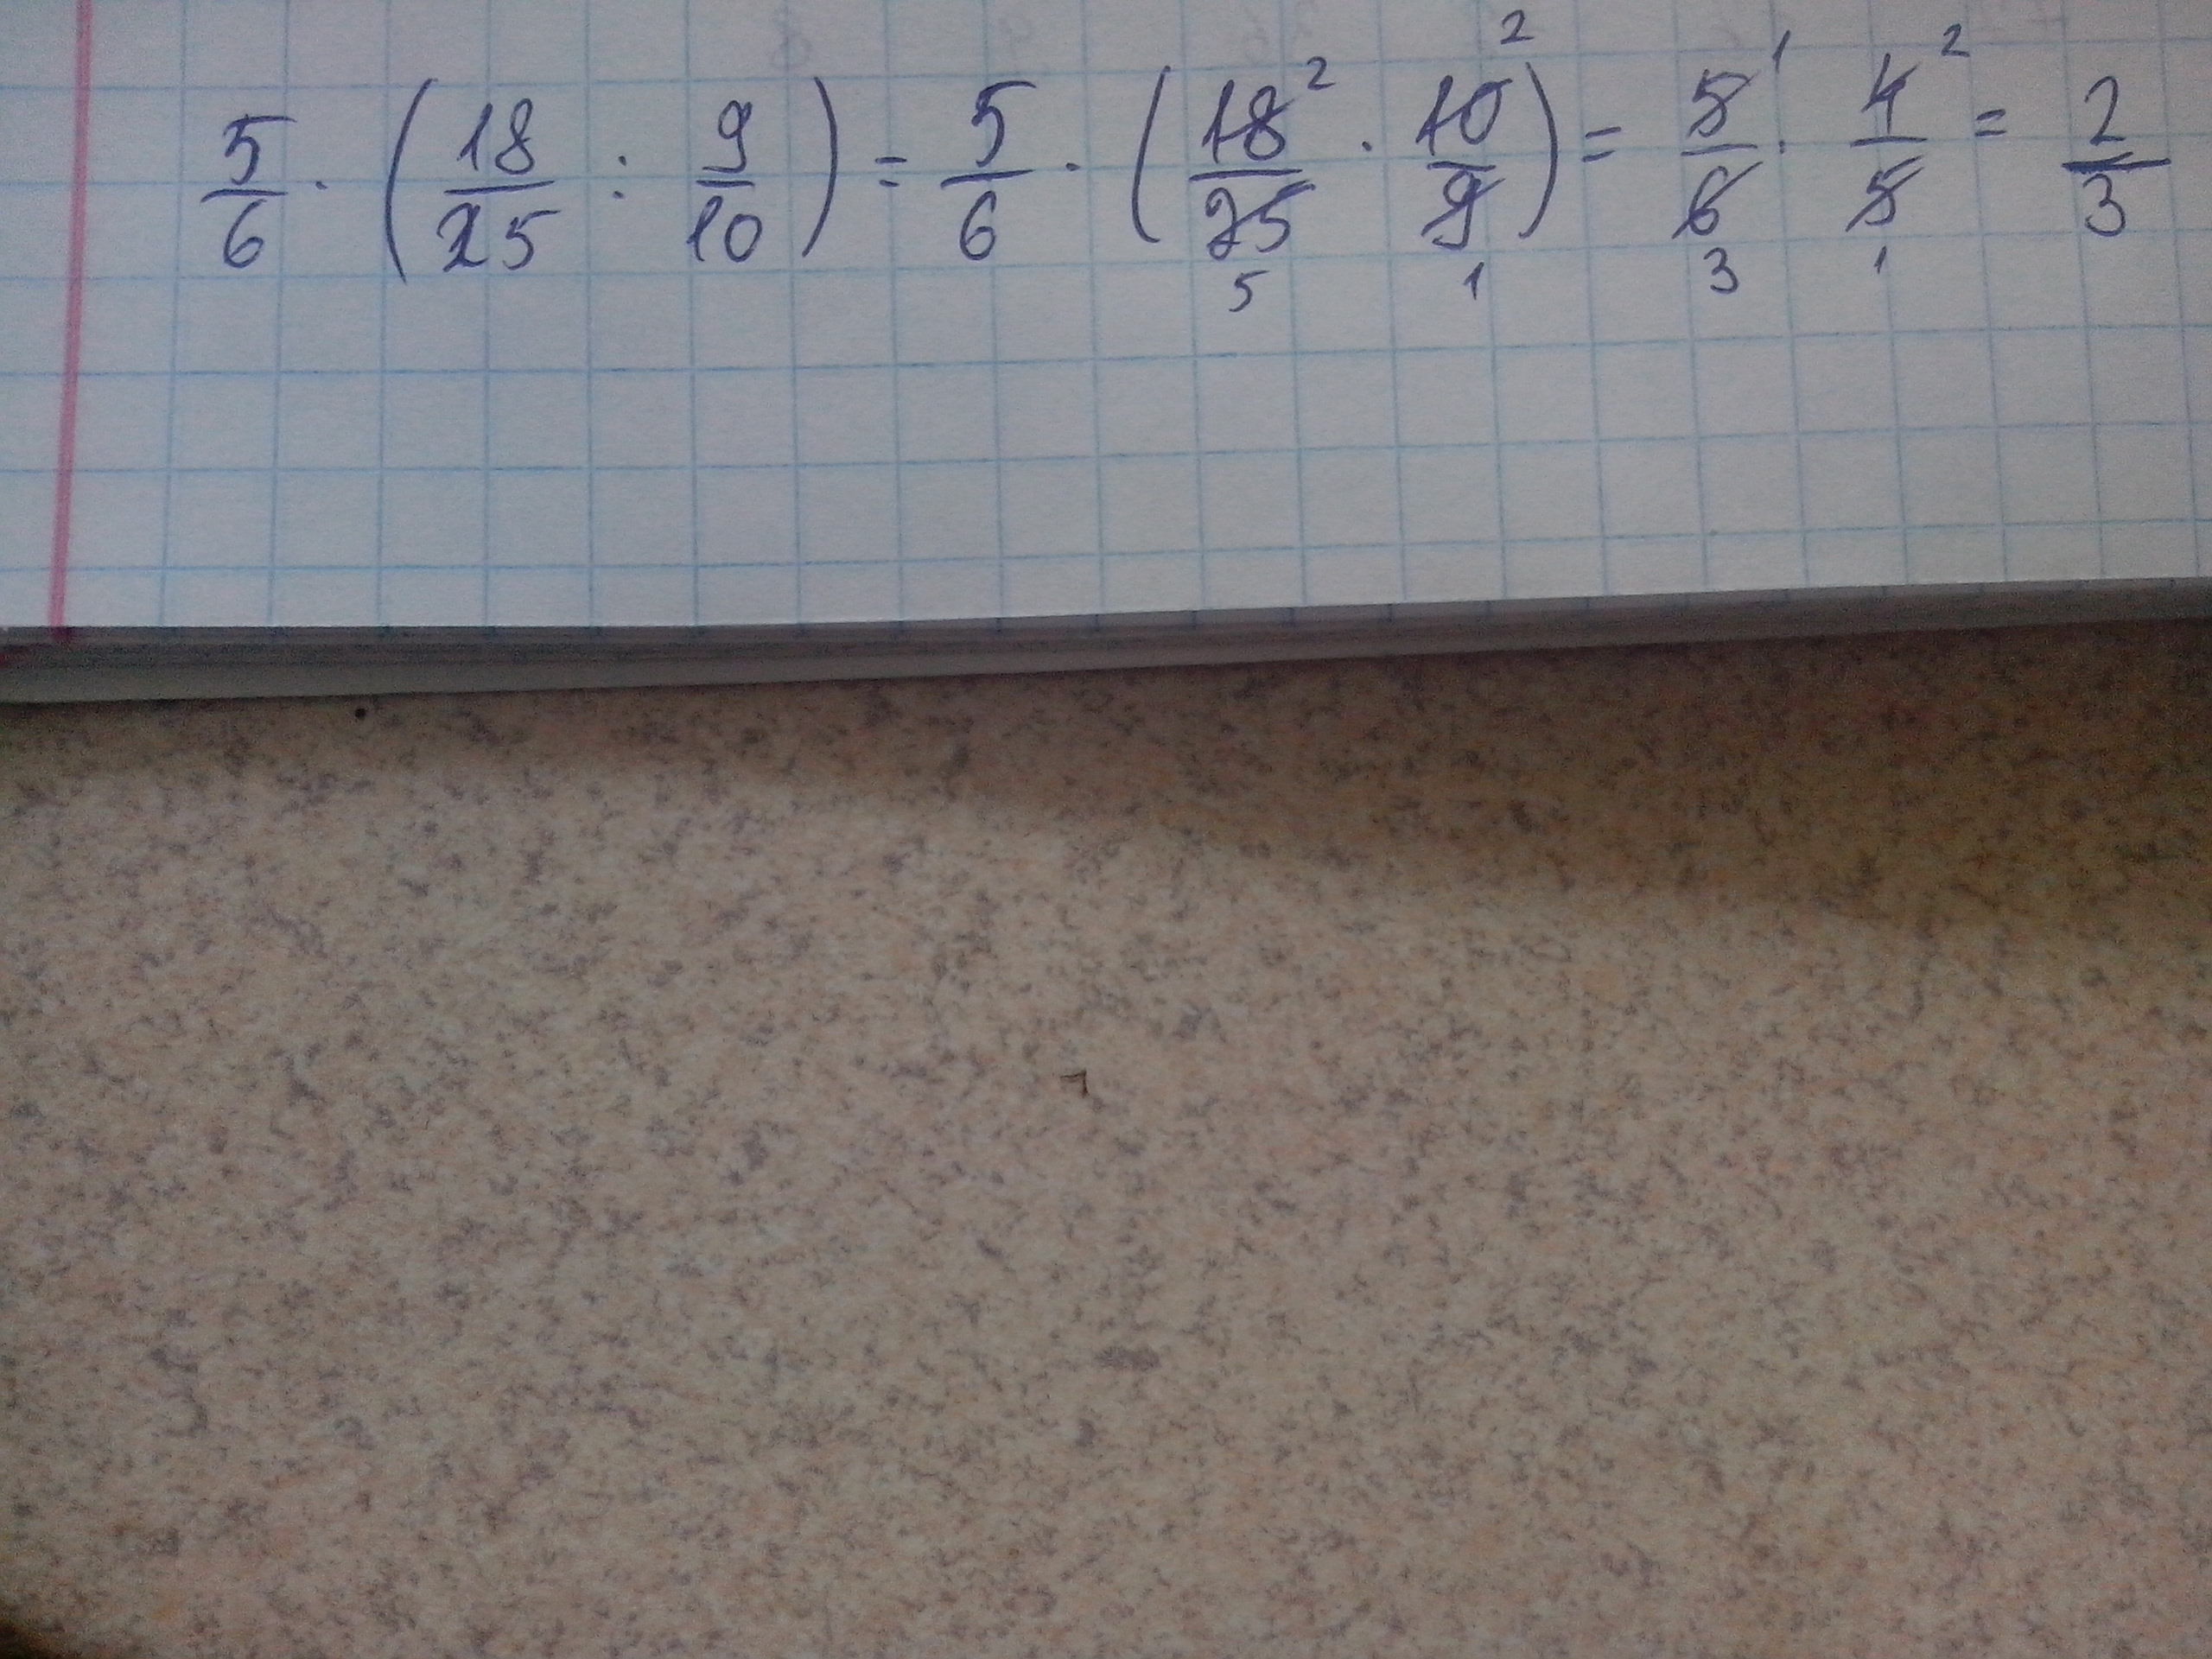 5/6 · (18/25 : 9/10) = 5/6 · (18²/25₅ · 10²/9₁) = 5¹/6₃ · 4²/5₁ = 2/3